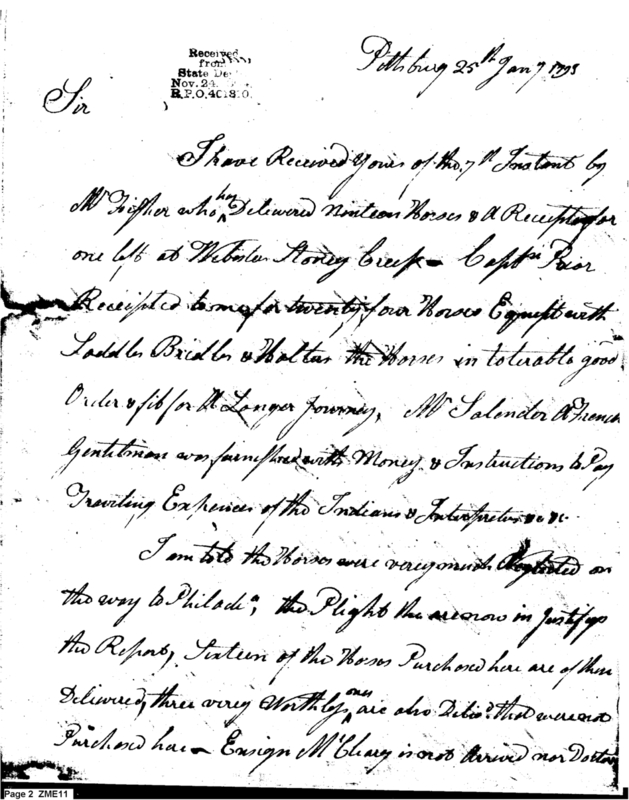 Received
from
State De
Nov. 24
R.P.O. 401810.
Pittsburg 25th Jany 1793
Sir
I have Received Yours of the 7th Instant by
Mr Fisher who has Delivered Nineteen Horses & A Receipt for
one left at Webster Stoney Creek - Captn Prior
Receipted to me for twenty four Horses Equipt with
Saddles Bridles & Halters the Horses in tolerable good
Order & fit for A Longer Journey, Mr Salendor A French
Gentilman was furnished with Money & Instructions to Pay
Traveling Expences of the Indians & Interpreters &c &c
I am told the Horses were verey much Neglected on
the way to Philada, the Plight the are now in Justifys
the Report, Sixteen of the Horses Purchased here are of them
Delivered, three verey Worthless ones are also Delivd. that were not
Purchased here - Ensign McCleary is not Arrived nor Doctor
Page 2 ZME11